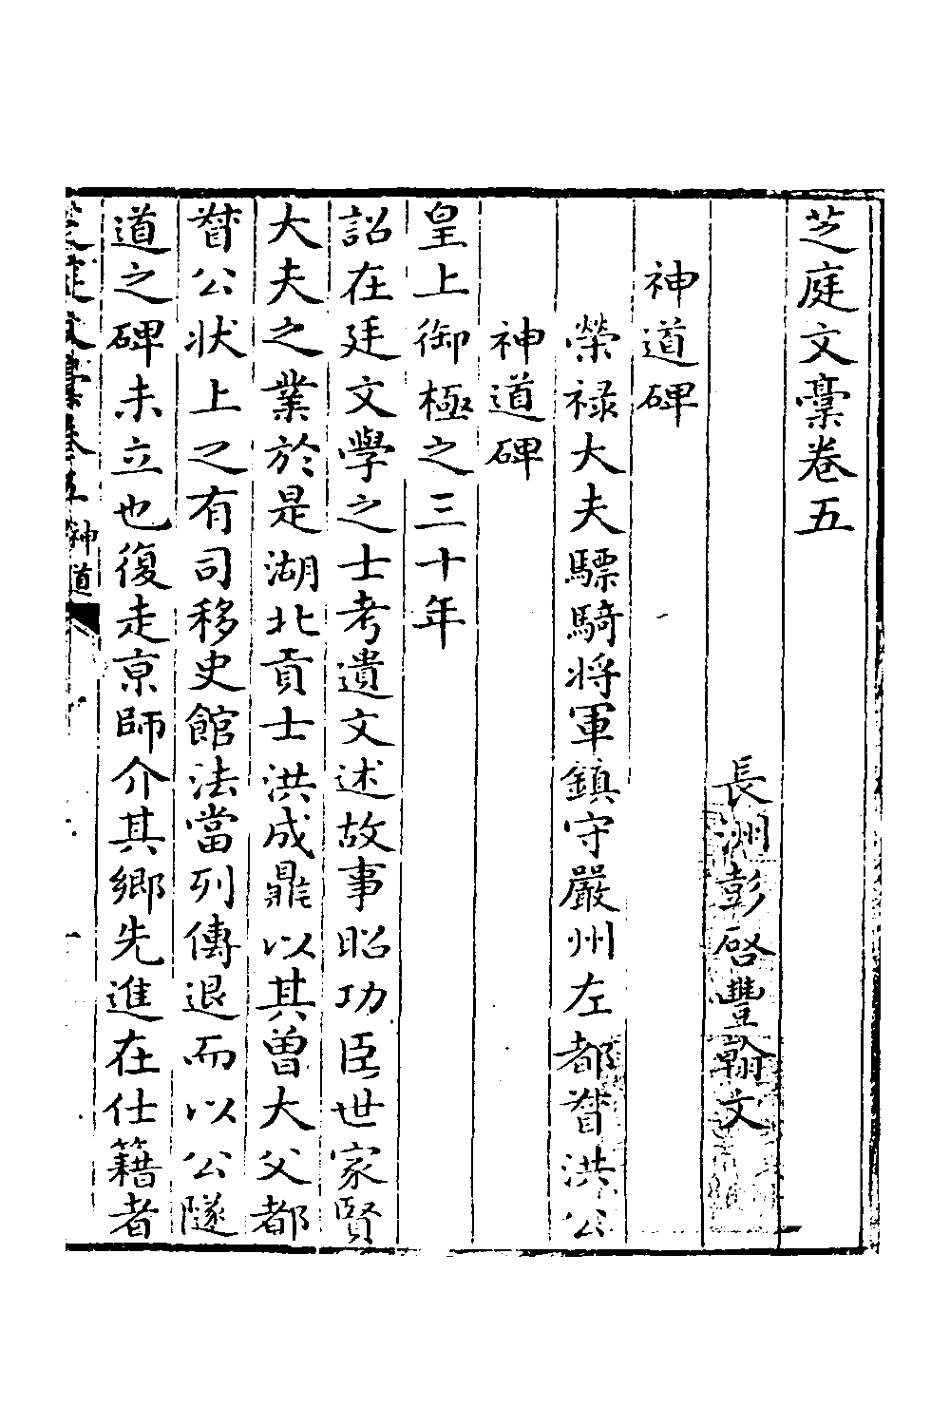 芝庭文稾卷五
長洲彭啓豐翰文
神道碑
榮祿大夫驃騎將軍鎮守嚴州左都督洪公
神道碑
皇上御極之三十年
詔在廷文學之士考遺文述故事昭功臣世家賢
大夫之業於是湖北貢士洪成鼎以其曾大父都
督公狀上之有司移史館法當列傳退而以公隧
道之碑未立也復走京師介其鄉先進在仕籍者
芝庭文稾卷五 神道